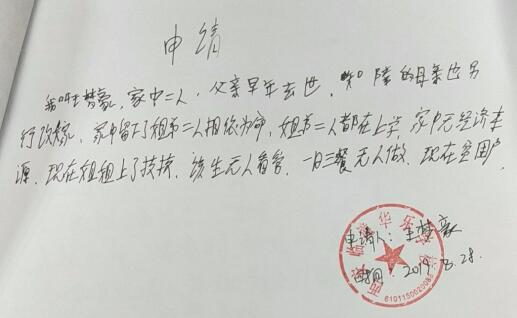 申请
我叫王梦豪,家中二人,父亲早年去世,的母亲也另
行改嫁,家中留下姐弟二人相依为命,姐弟二人都在上学,家中无经济来
源,现在姐姐上了技校,该生无人看管,一日三餐无人做,现在贫困户,
申请人:王梦豪
日期:2019.8.28.
6101150020085